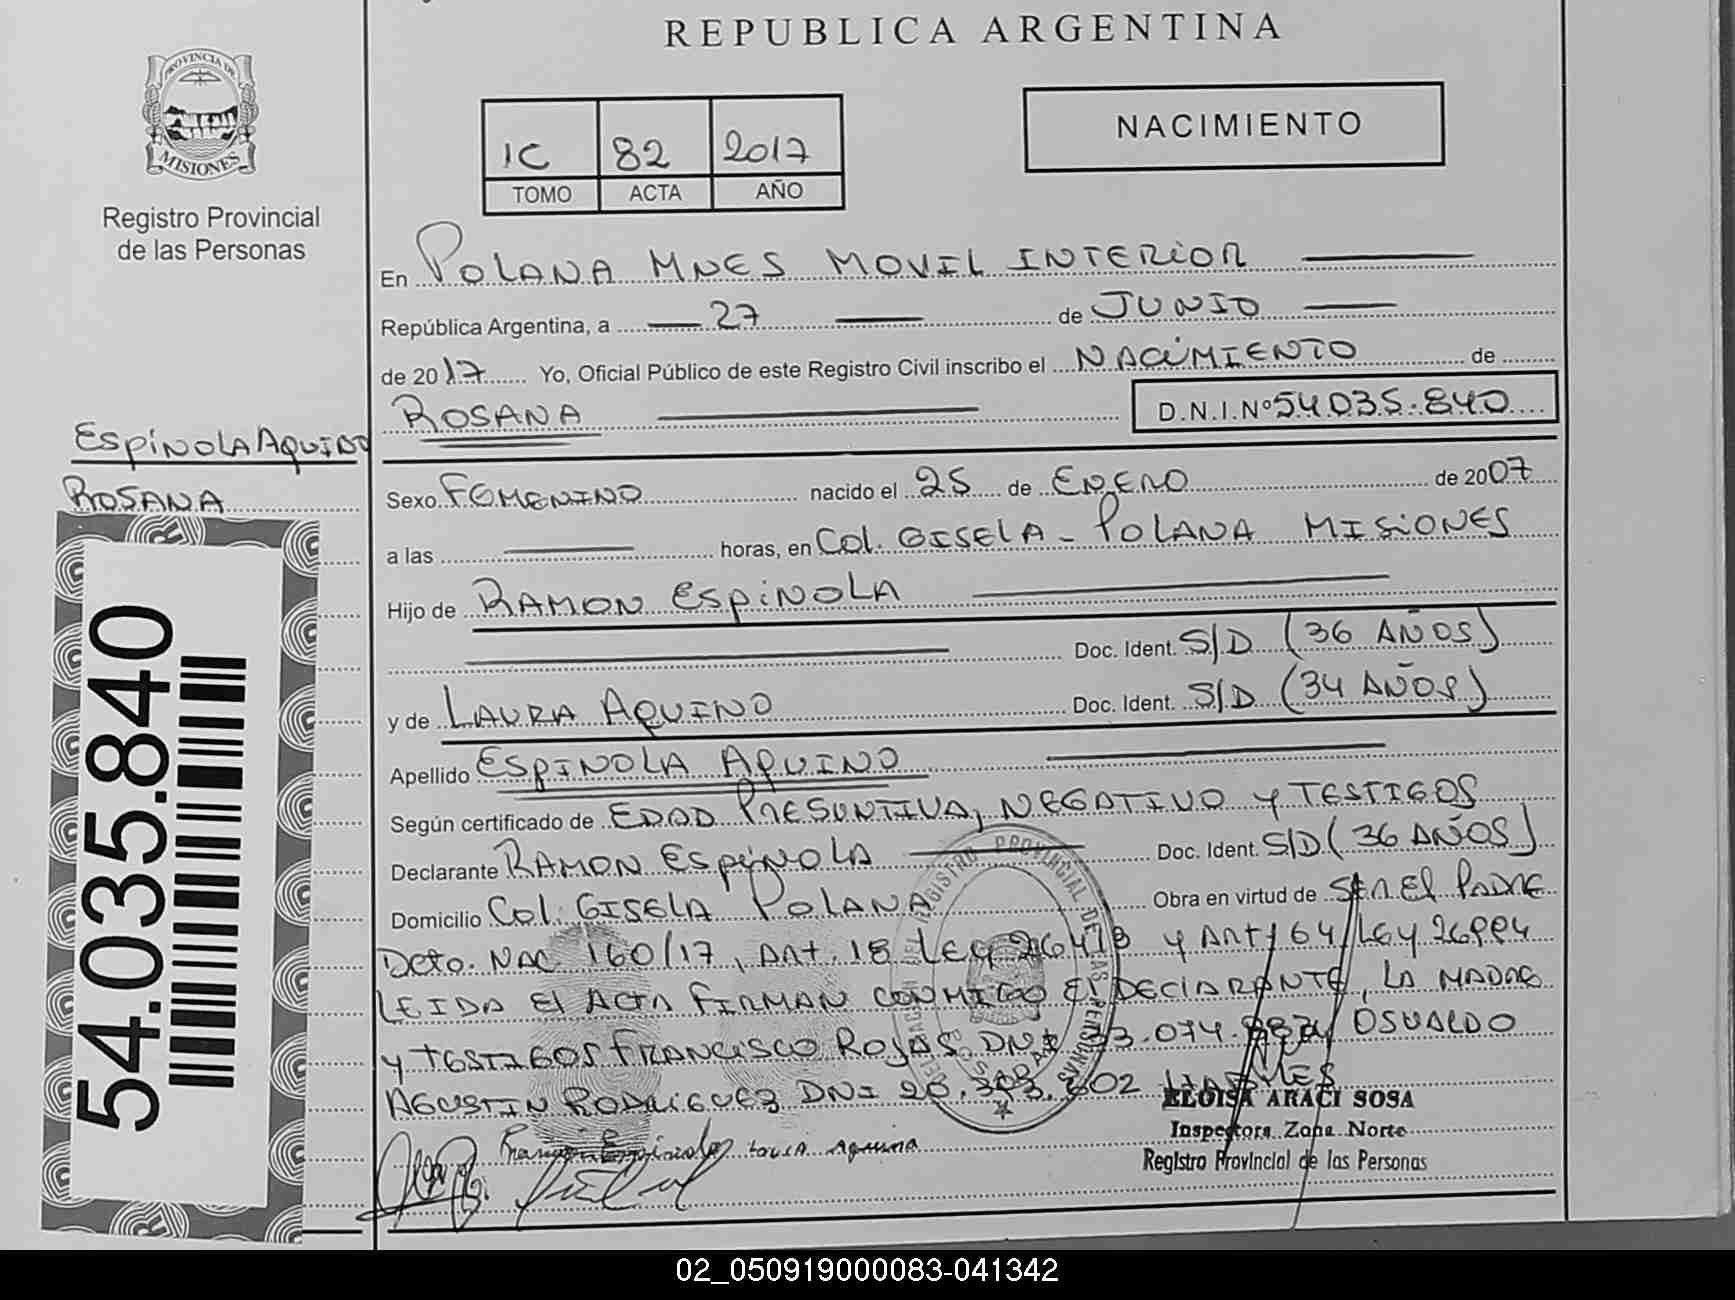 REPUBLICA ARGENTINA
PROVINCIA DE MISIONES
Registro Provincial
de las Personas
1C 82 2017
TOMO ACTA AÑO
NACIMIENTO
En POLANA MNES MOVIL INTERIOR
República Argentina, a 27 de JUNIO
de 2017 Yo, Oficial Público de este Registro Civil inscribo el NACIMIENTO de
ROSANA D.N.I.Nº 54.035.840
ESPÍNOLA AQUINO
ROSANA
54.035.840
Sexo FEMENINO nacido el 25 de ENERO de 2007
a las horas, en COL. GISELA - POLANA MISIONES
Hijo de RAMON ESPINOLA
Doc. Ident. S/D (36 AÑOS)
y de LAURA AQUINO Doc. Ident. S/D (34 AÑOS)
Apellido ESPINOLA AQUINO
Según certificado de EDAD PRESUNTIVA, NEGATIVO Y TESTIGOS
Declarante RAMON ESPÍNOLA Doc. Ident. S/D (36 AÑOS)
Domicilio COL. GISELA POLANA Obra en virtud de SER EL PADRE
Dcto. NAC 160/17, ART. 18 LEY 26413 Y ART 64 LEY 26994
LEIDA EL ACTA FIRMAN CONMIGO EL DECLARANTE, LA MADRE
Y TESTIGOS FRANCISCO ROJAS DNI OSVALDO
AGUSTIN RODRIGUEZ DNI
Ramon Espinola Laura Aquino
REGISTRO PROVINCIAL DE LAS PERSONAS
ELOISA ARACI SOSA
Inspectora Zona Norte
Registro Provincial de las Personas
02_050919000083-041342